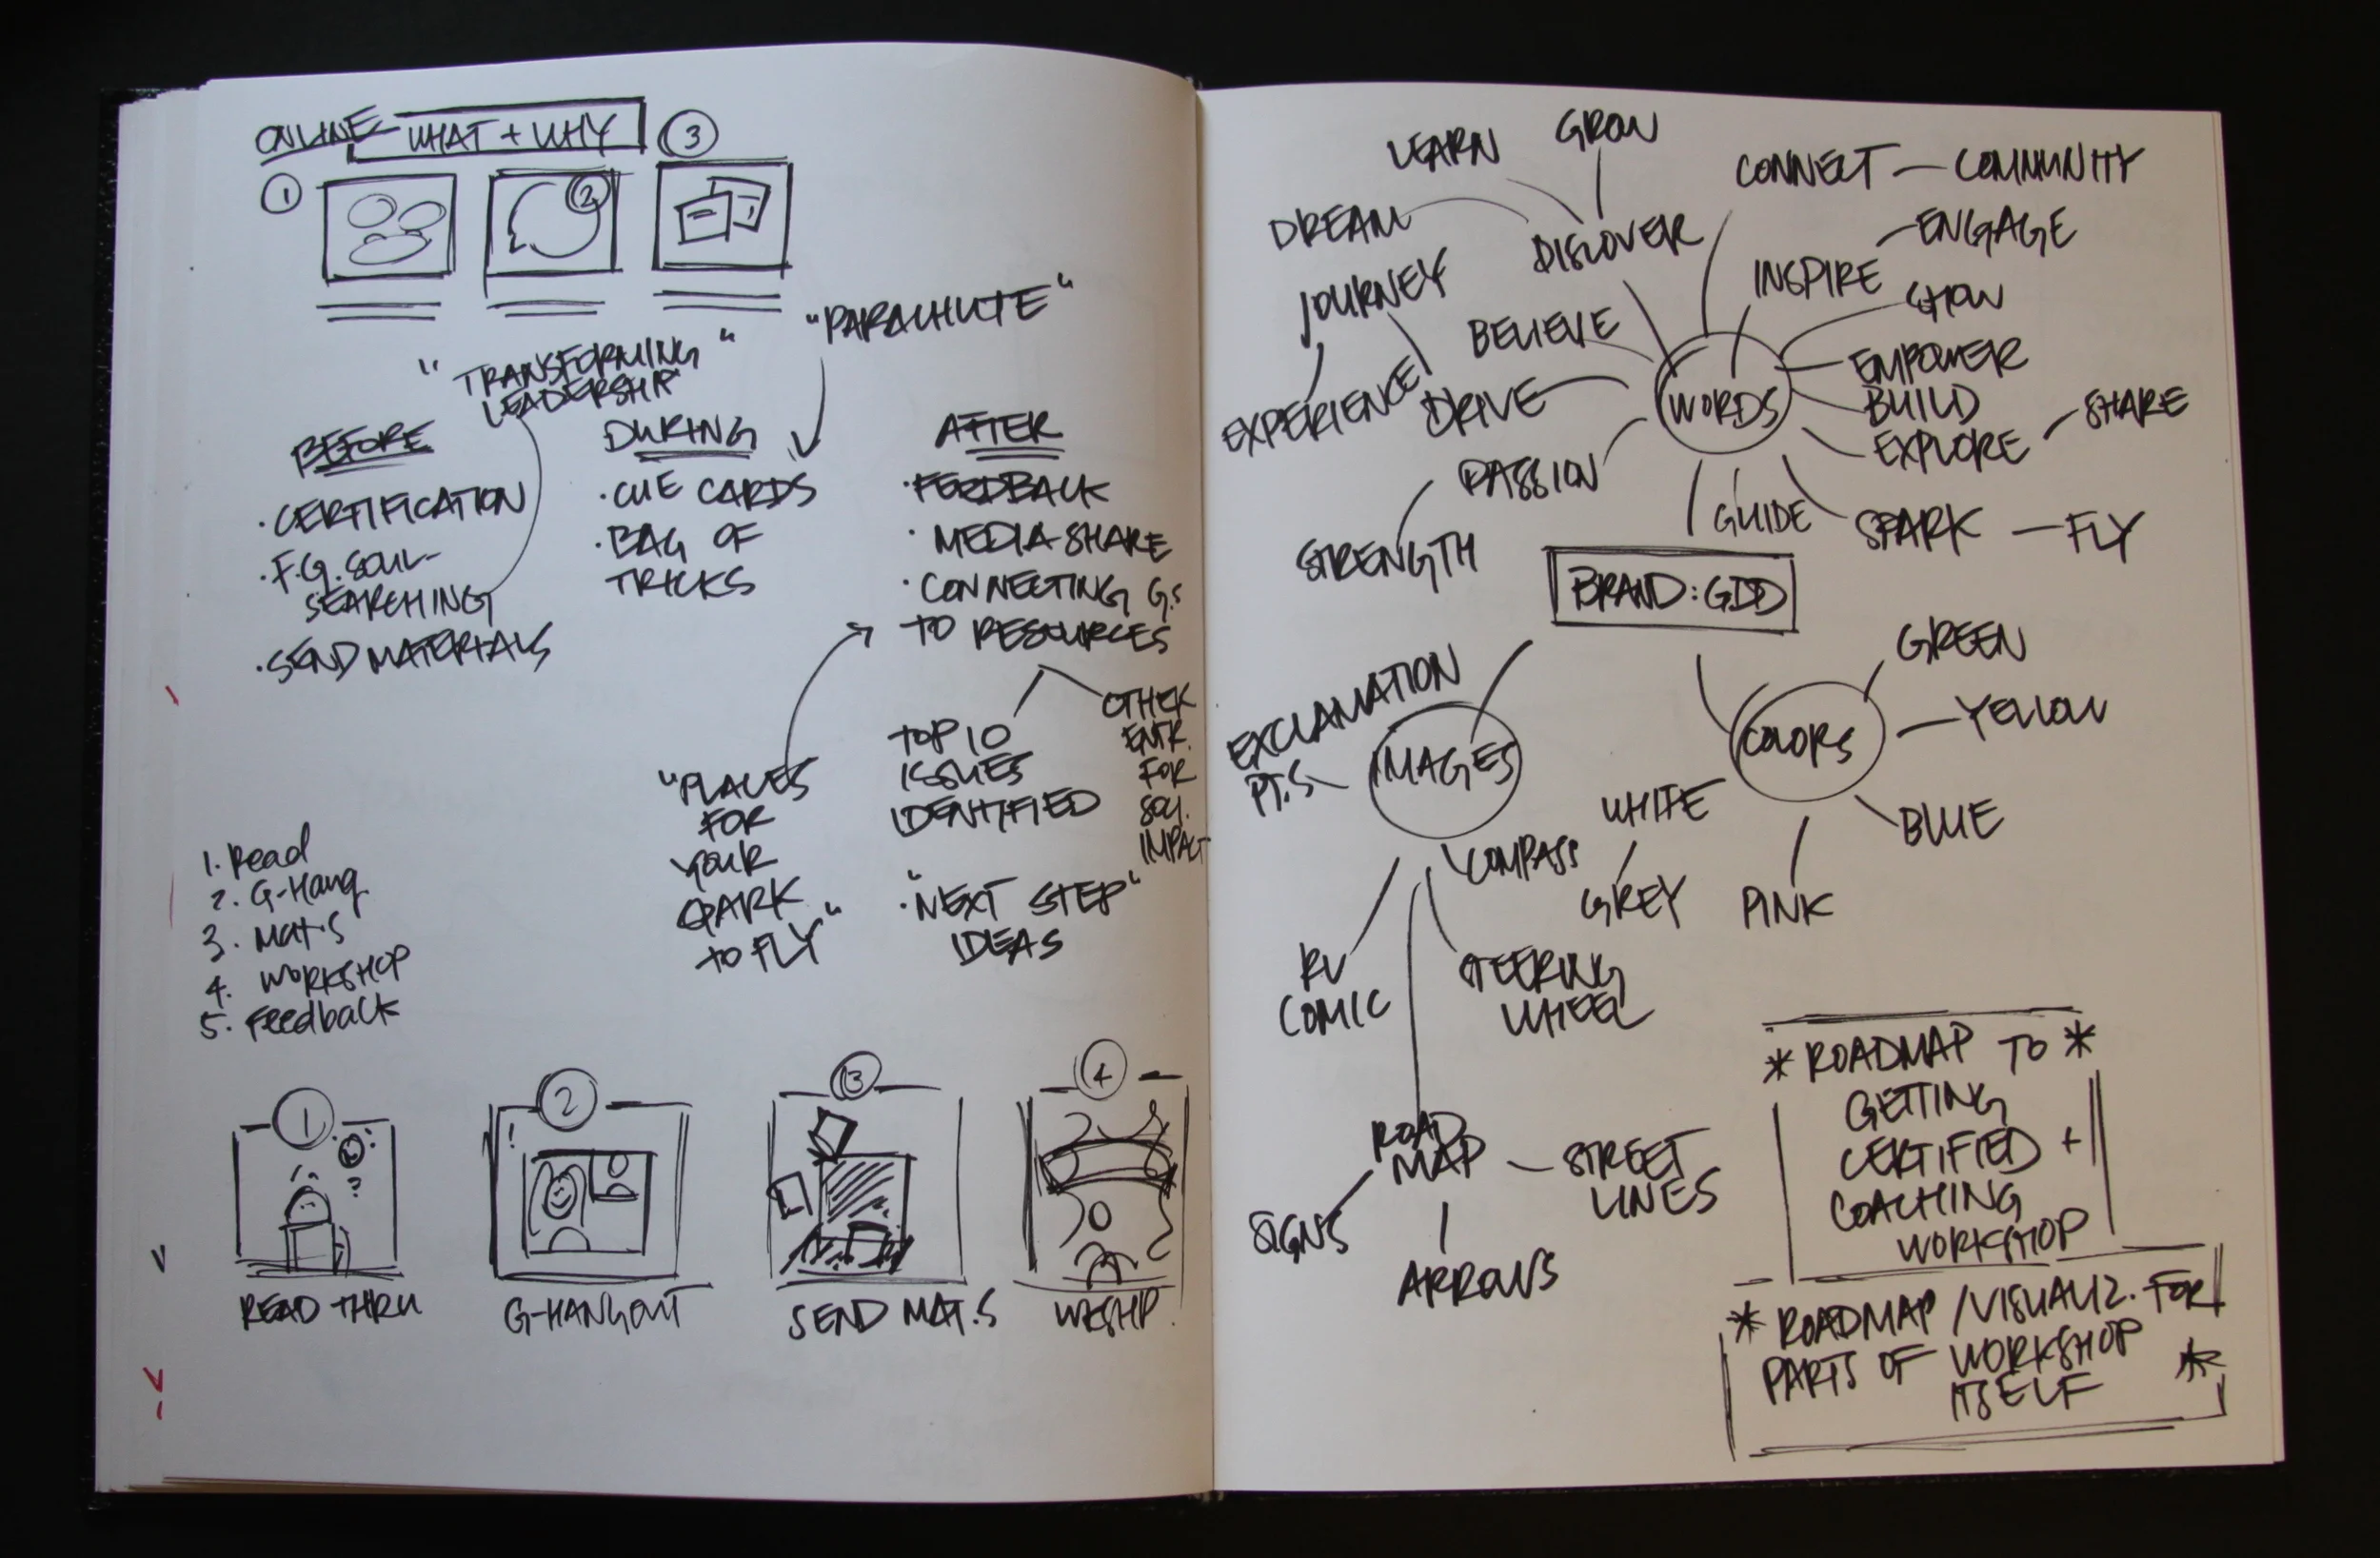 ONLINE WHAT + WHY
1
2
3
"PARACHUTE"
"TRANSFORMING
LEADERSHIP"
BEFORE
· CERTIFICATION
· F.G. SOUL-
SEARCHING
· SEND MATERIALS
DURING
· CUE CARDS
· BAG OF
TRICKS
AFTER
· FEEDBACK
· MEDIA SHARE
· CONNECTING G.S
TO RESOURCES
TOP 10
ISSUES
IDENTIFIED
OTHER
ENTR.
FOR
SOC.
IMPACT
"PLACES
FOR
YOUR
SPARK
TO FLY"
· "NEXT STEP"
IDEAS
1. Read
2. G-Hang
3. MAT.S
4. WORKSHOP
5. Feedback
1
?
READ THRU
2
!
G-HANGOUT
3
SEND MAT.S
4
WKSHP.
LEARN
GROW
DREAM
DISCOVER
CONNECT — COMMUNITY
INSPIRE — ENGAGE
JOURNEY
BELIEVE
EXPERIENCE
DRIVE
WORDS
EMPOWER
BUILD
EXPLORE — SHARE
PASSION
STRENGTH
GUIDE
SPARK — FLY
BRAND: GDD
EXCLAMATION
PT.S
IMAGES
COLORS
GREEN
YELLOW
BLUE
PINK
WHITE
GREY
COMPASS
STEERING
WHEEL
RV
COMIC
ROAD
MAP
STREET
LINES
SIGNS
ARROWS
* ROADMAP TO *
GETTING
CERTIFIED +
COACHING
WORKSHOP
* ROADMAP / VISUALIZ. FOR
PARTS OF WORKSHOP
ITSELF *